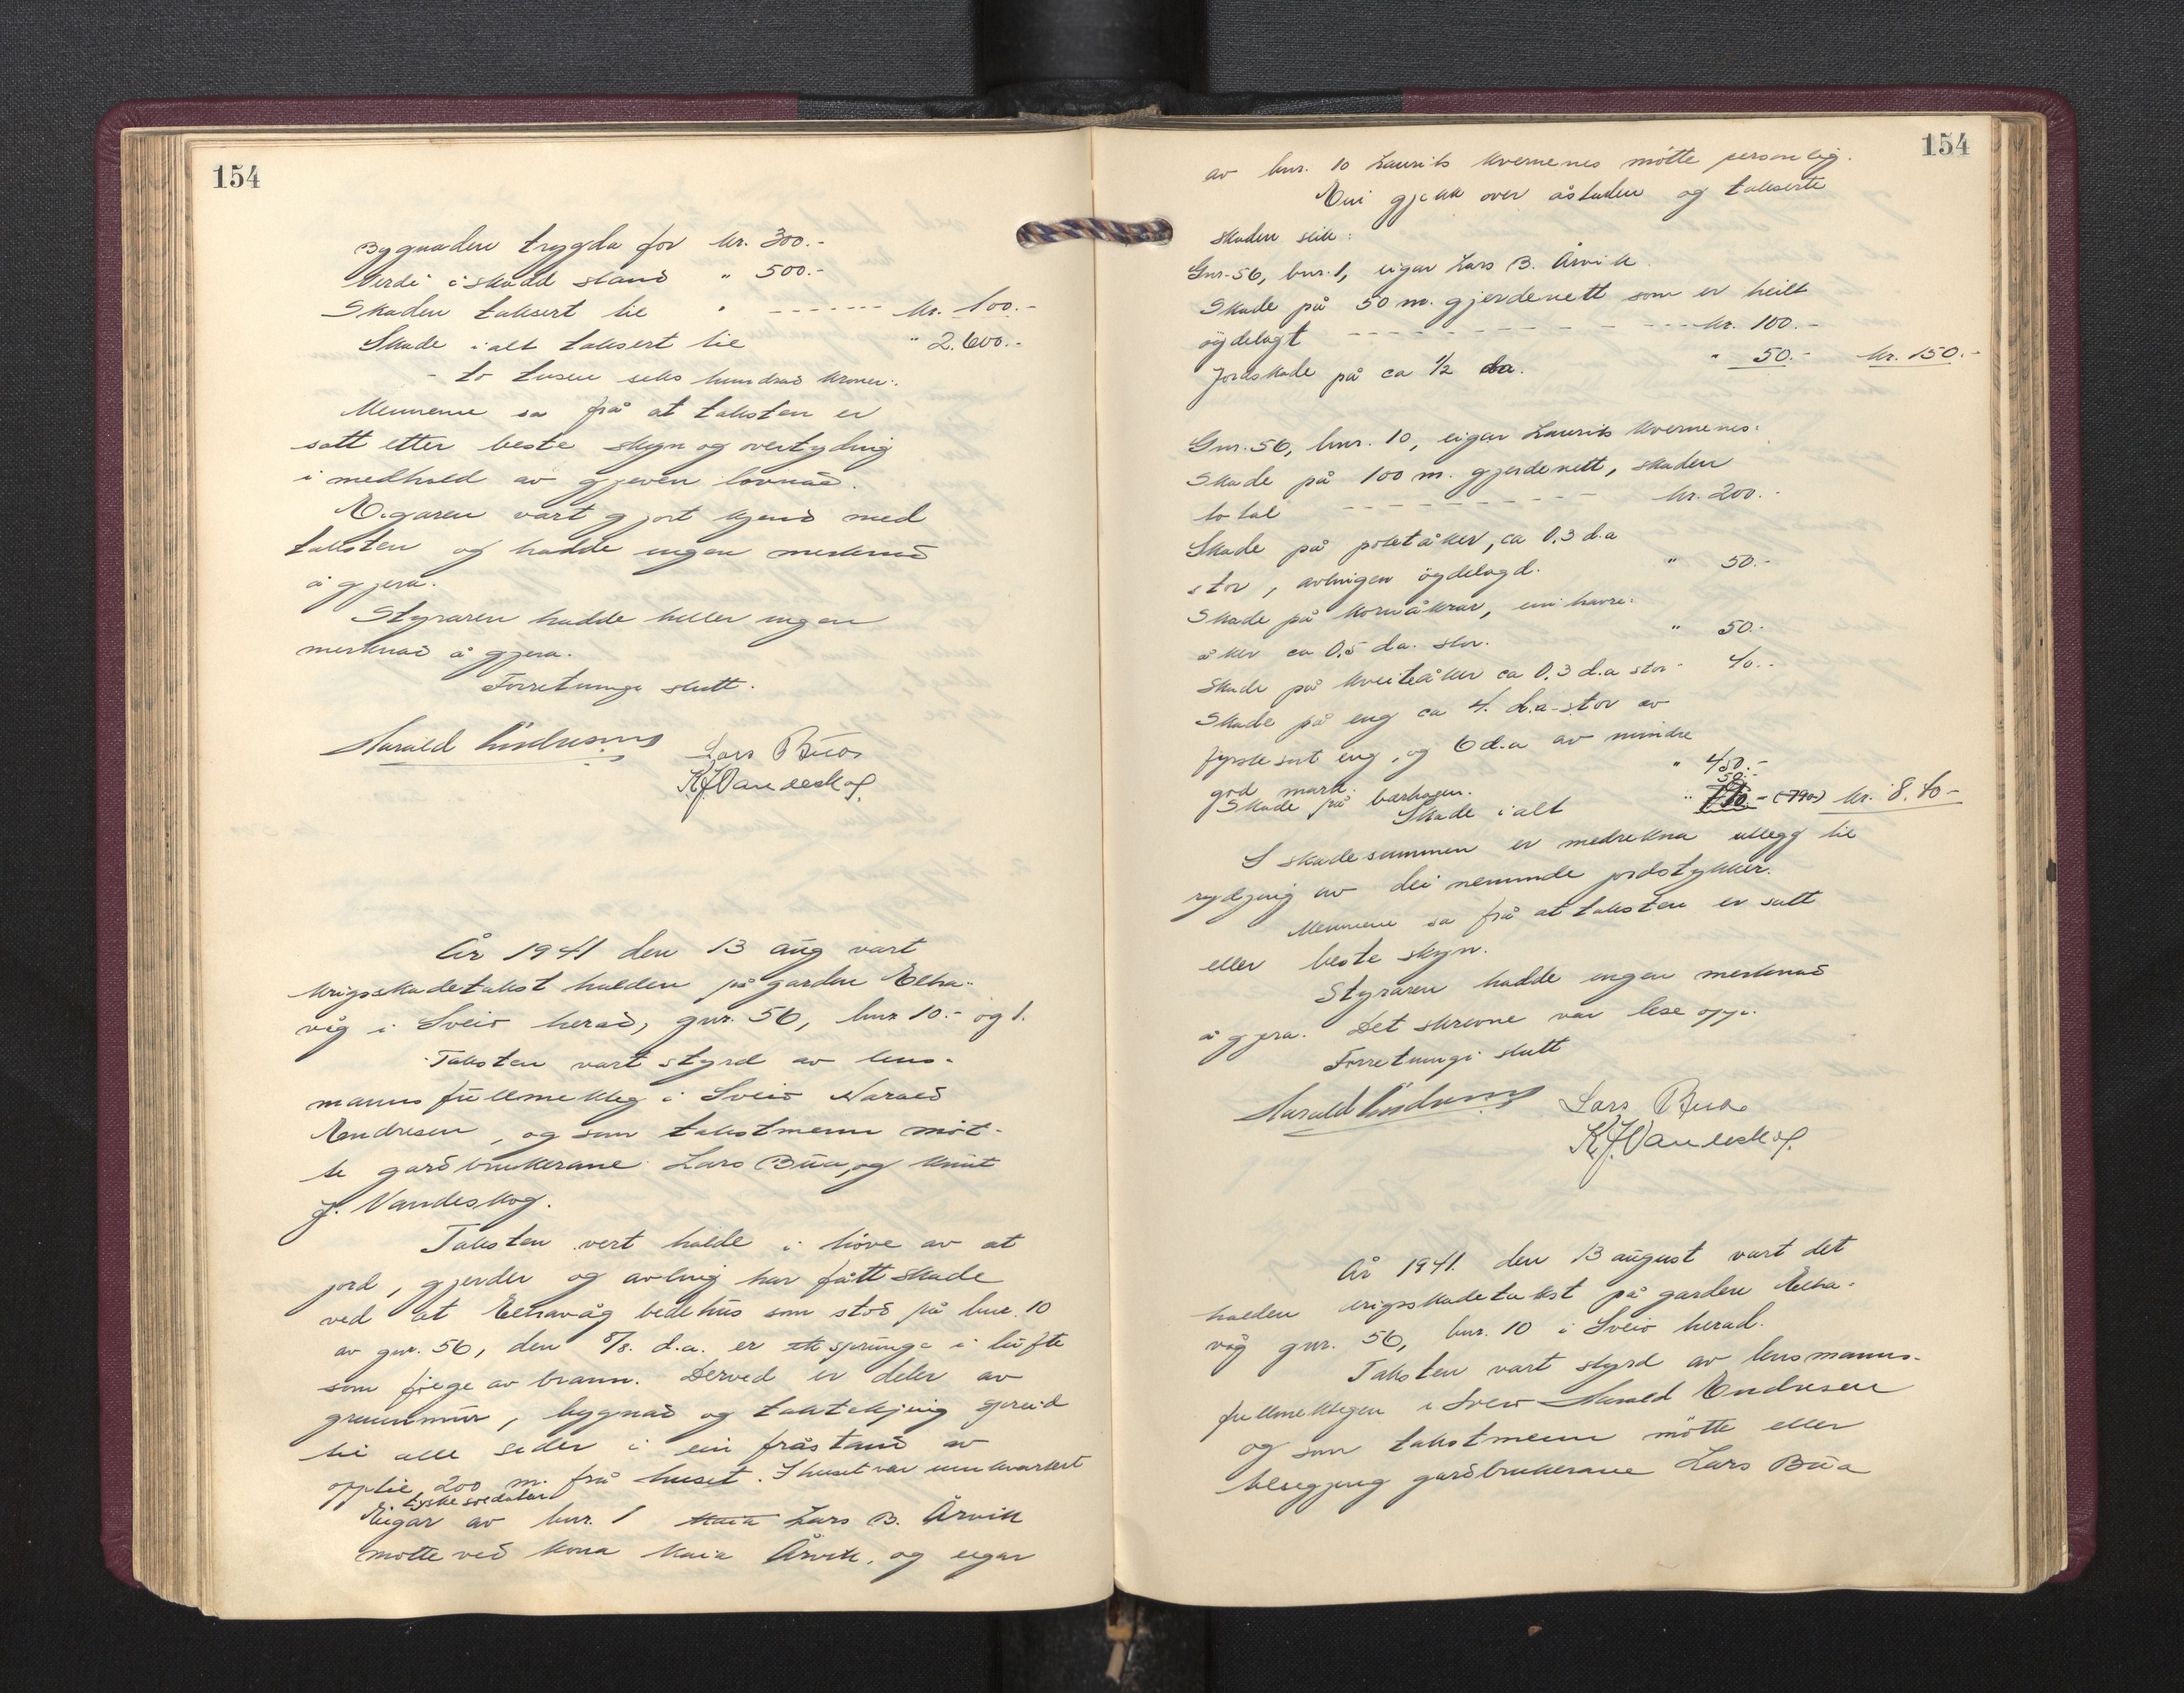 154
Bygnaden trygda for kr. 300.-
Verdi i skadd stand " 500.-
Skaden taksert til " - - - - - - kr. 100.-
Skade i alt taksert til " 2.600.-
- to tusen seks hundrad kroner.-
Mennene sa frå at taksten er
satt etter beste skyn og overtyding
i medhald av gjeven lovnad.
Eigaren vart gjort kjend med
taksten og hadde ingen merknad
å gjera.
Styraren hadde heller ingen
merknad å gjera.
Forretninga slutt.
Harald Endresen Lars Bua
K.J. Vandeskog.
År 1941 den 13 aug vart
krigsskadetakst halden på garden Elha-
våg i Sveio herad, gnr. 56, bnr 10.- og 1.
Taksten vart styrd av lens-
mannsfullmektig i Sveio Harald
Endresen, og som takstmenn møt-
te gardbrukerane Lars Bua, og Knut
J. Vandeskog.
Taksten vert halde i høve av at
jord, gjerder og avling har fått skade
ved at Elhavåg bedehus som stod på bnr. 10
av gnr. 56, den 8/8. d.a. er sprunge i lufte
som fylgje av brann. Derved er deler av
grunnmur, bygnad og taktekjing spreid
til alle sider i ein fråstand av
opptil 200 m. frå huset. I huset var innkvartert
tyske soldatar
Eigar av bnr. 1 Kaia Lars B. Årvik
møtte ved kona Kaia Årvik, og eigar
154
av bnr. 10 Laurits Kvernenes møtte personleg.
Ein gjekk over åstaden og takserte
skaden slik:
Gnr. 56, bnr. 1, eigar Lars B. Årvik.
Skade på 50 m. gjerdenett som er heilt
øydelagt - - - - - - - - - - - kr. 100.-
Jordskade på ca 1/2 da. " 50.- kr. 150.-
Gnr. 56, bnr. 10, eigar Laurits Kvernenes:
Skade på 100 m. gjerdenett, skaden
total - - - - - - - - kr. 200.-
Skade på potetåker, ca 0.3 d.a
stor, avlingen øydelagd. " 50.-
Skade på kornåkrar, ein havre-
åker ca 0.5 da. stor. " 50.-
Skade på kveiteåker ca 0.3 d.a stor " 40.-
Skade på eng ca 4. d.a. stor av
fyrste sort eng, og 6 d.a av mindre
god mark. " 450.-
Skade på bærhagen. 50.-
Skade i alt " (790) kr. 8.40-
I skadesummen er medrekna utlegg til
rydjing av dei nemnde jordstykker.
Mennene sa frå at taksten er satt
etter beste skyn.
Styraren hadde ingen merknad
å gjera. Det skrevne var lese opp.
Forretningi slutt
Harald Endresen Lars Bua
K.J. Vandeskog.
År 1941. den 13 august vart det
halden krigsskadetakst på garden Elha-
våg gnr. 56, bnr. 10 i Sveio herad.
Taksten vart styrd av lensmanns-
fullmektigen i Sveio Harald Endresen
og som takstmenn møtte etter
tilsegjing gardbrukerane Lars Bua